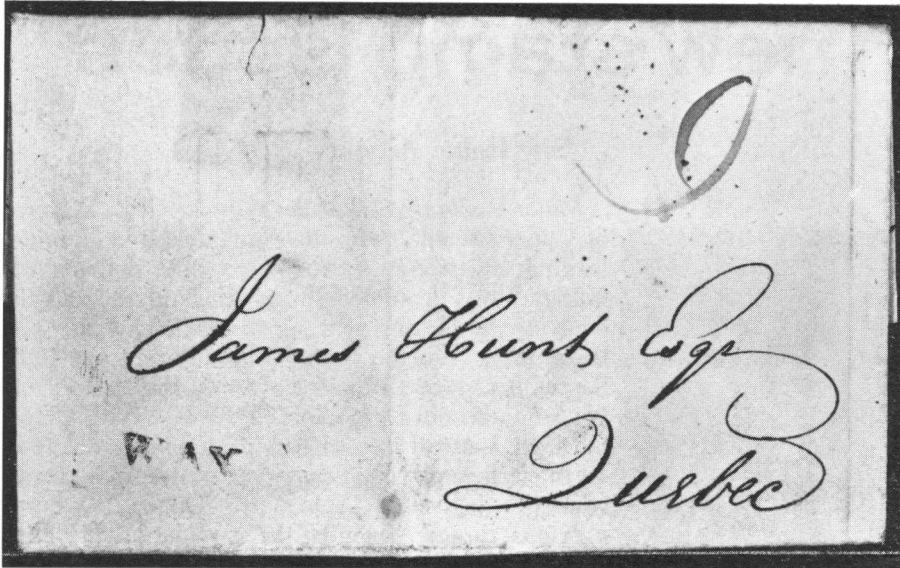 9
James Hunt Esqr
Quebec